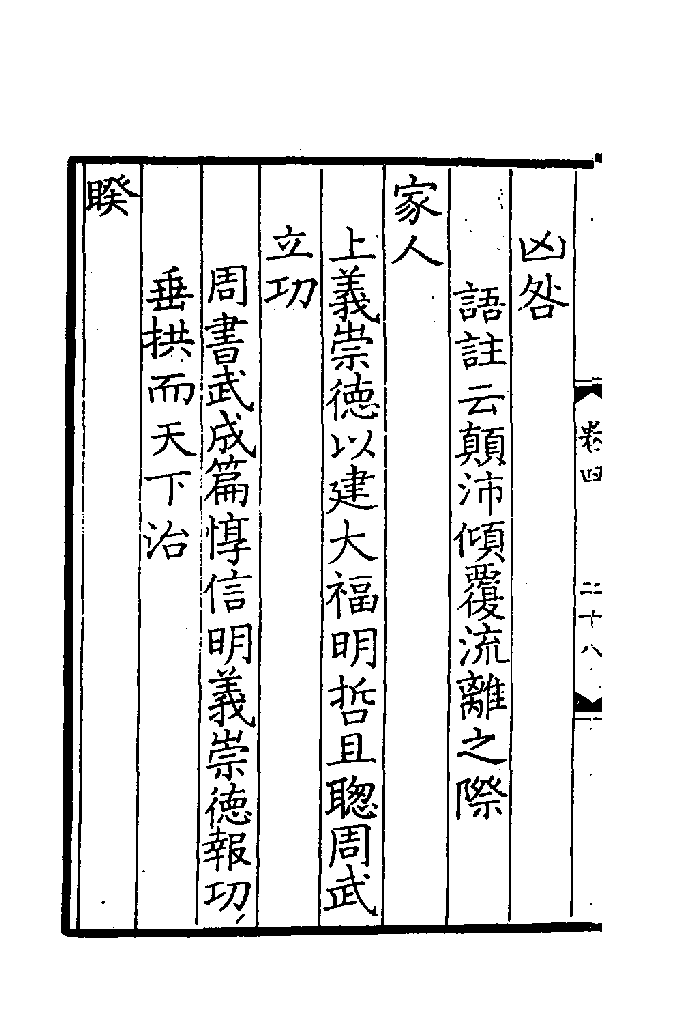 凶咎
語註云顛沛傾覆流離之際
家人
上義崇徳以建大福明哲且聰周武
立功
周書武成篇惇信明義崇徳報功
垂拱而天下治
睽
卷四
二十八